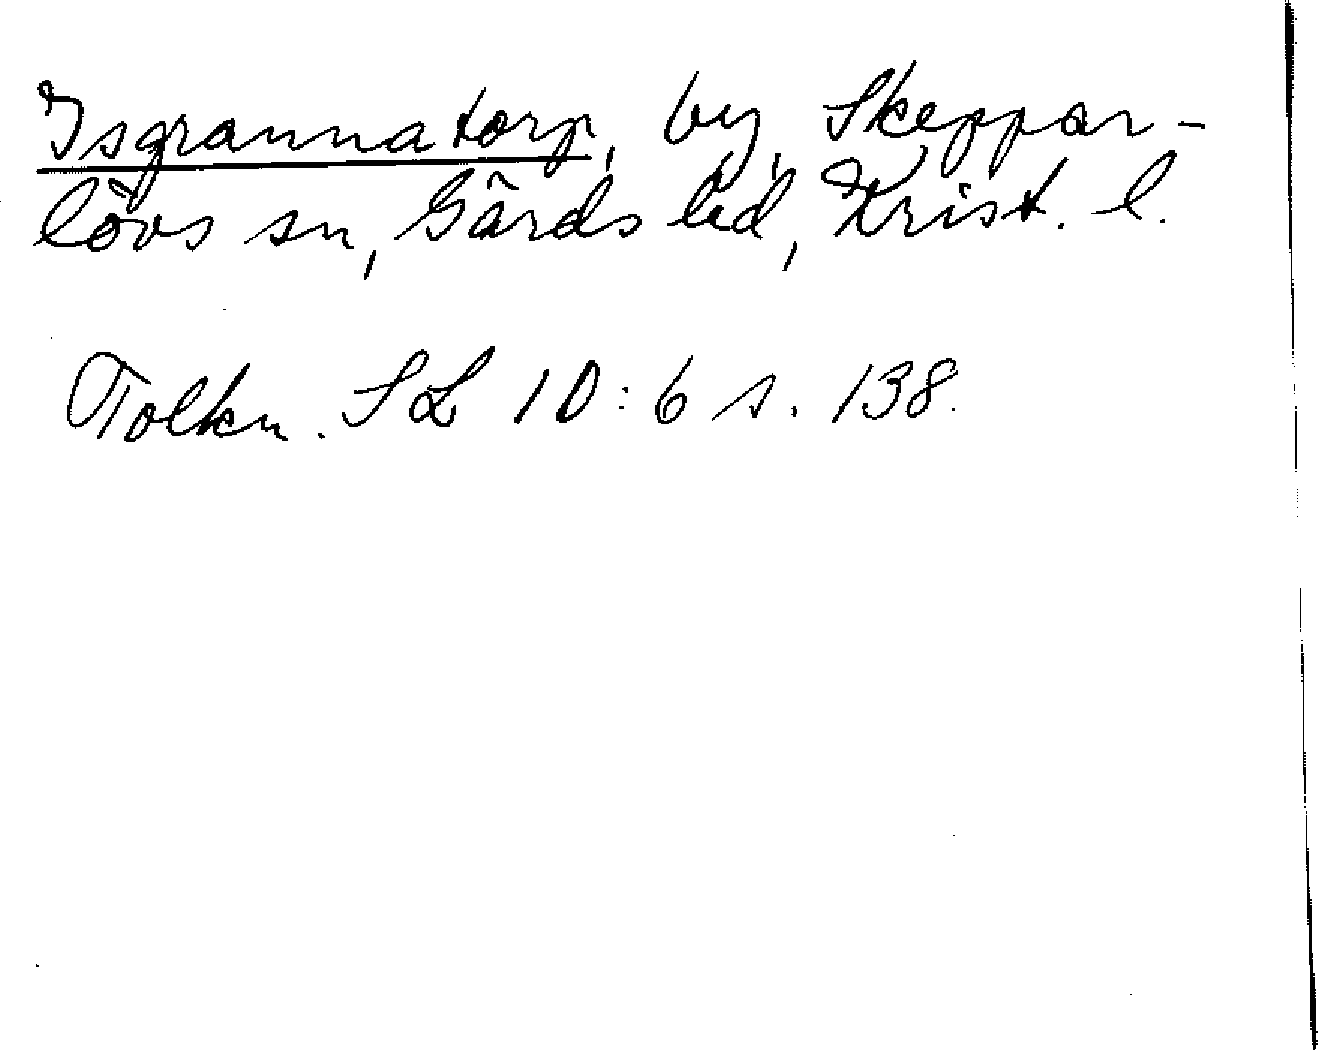 Isgrannatorp, by, Skeppar-
lövs sn, Gärds hd, Krist. l.
Tolkn. SL 10:6 s. 138.